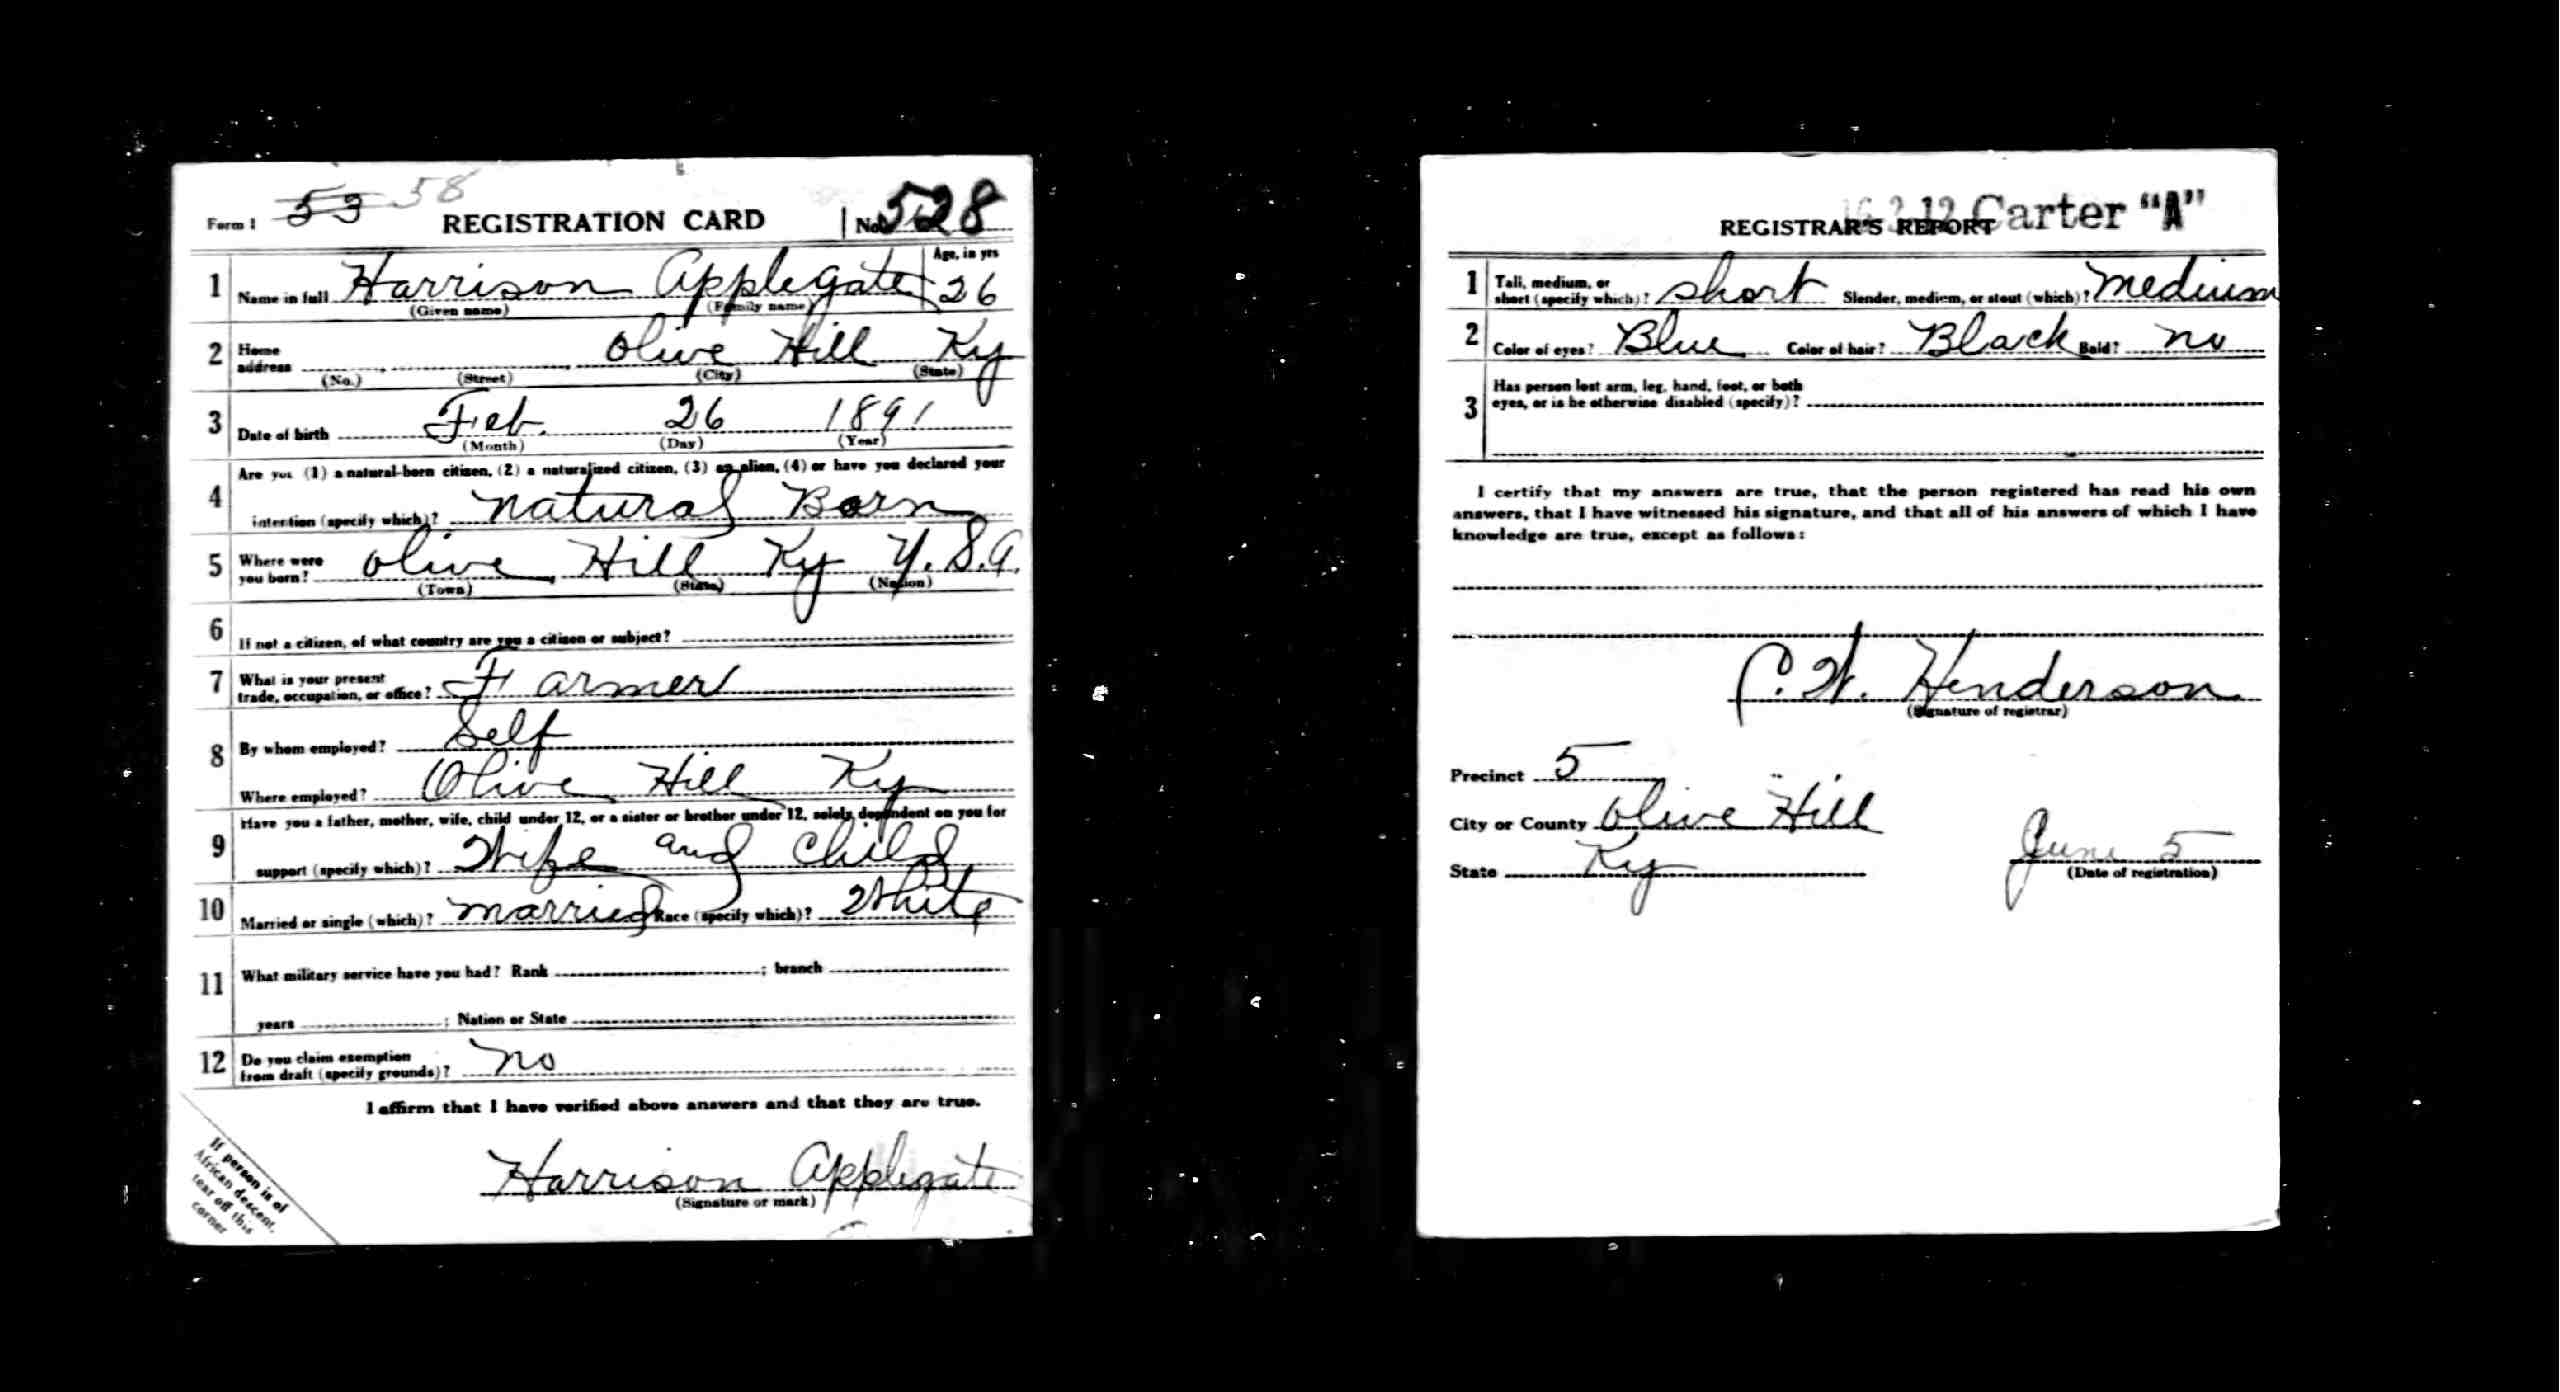 Form 1 53 58 REGISTRATION CARD No. 528
1 Name in full Harrison Applegate Age, in yrs 26
(Given name) (Family name)
2 Home address Olive Hill Ky
(No.) (Street) (City) (State)
3 Date of birth Feb. 26 1891
(Month) (Day) (Year)
4 Are you (1) a natural-born citizen, (2) a naturalized citizen, (3) an alien, (4) or have you declared your
intention (specify which)? Natural Born
5 Where were you born? Olive Hill Ky U.S.A.
(Town) (State) (Nation)
6 If not a citizen, of what country are you a citizen or subject?
7 What is your present
trade, occupation, or office? Farmer
8 By whom employed? Self
Where employed? Olive Hill Ky
9 Have you a father, mother, wife, child under 12, or a sister or brother under 12, solely dependent on you for
support (specify which)? Wife and Child
10 Married or single (which)? Married Race (specify which)? White
11 What military service have you had? Rank ; branch
years ; Nation or State
12 Do you claim exemption
from draft (specify grounds)? No
I affirm that I have verified above answers and that they are true.
Harrison Applegate
(Signature or mark)
If person is of
African descent,
tear off this
corner
Carter "A"
REGISTRAR'S REPORT
1 Tall, medium, or
short (specify which)? Short Slender, medium, or stout (which)? Medium
2 Color of eyes? Blue Color of hair? Black Bald? No
3 Has person lost arm, leg, hand, foot, or both
eyes, or is he otherwise disabled (specify)?
I certify that my answers are true, that the person registered has read his own
answers, that I have witnessed his signature, and that all of his answers of which I have
knowledge are true, except as follows:
C. W. Henderson
(Signature of registrar)
Precinct 5
City or County Olive Hill
State Ky June 5
(Date of registration)